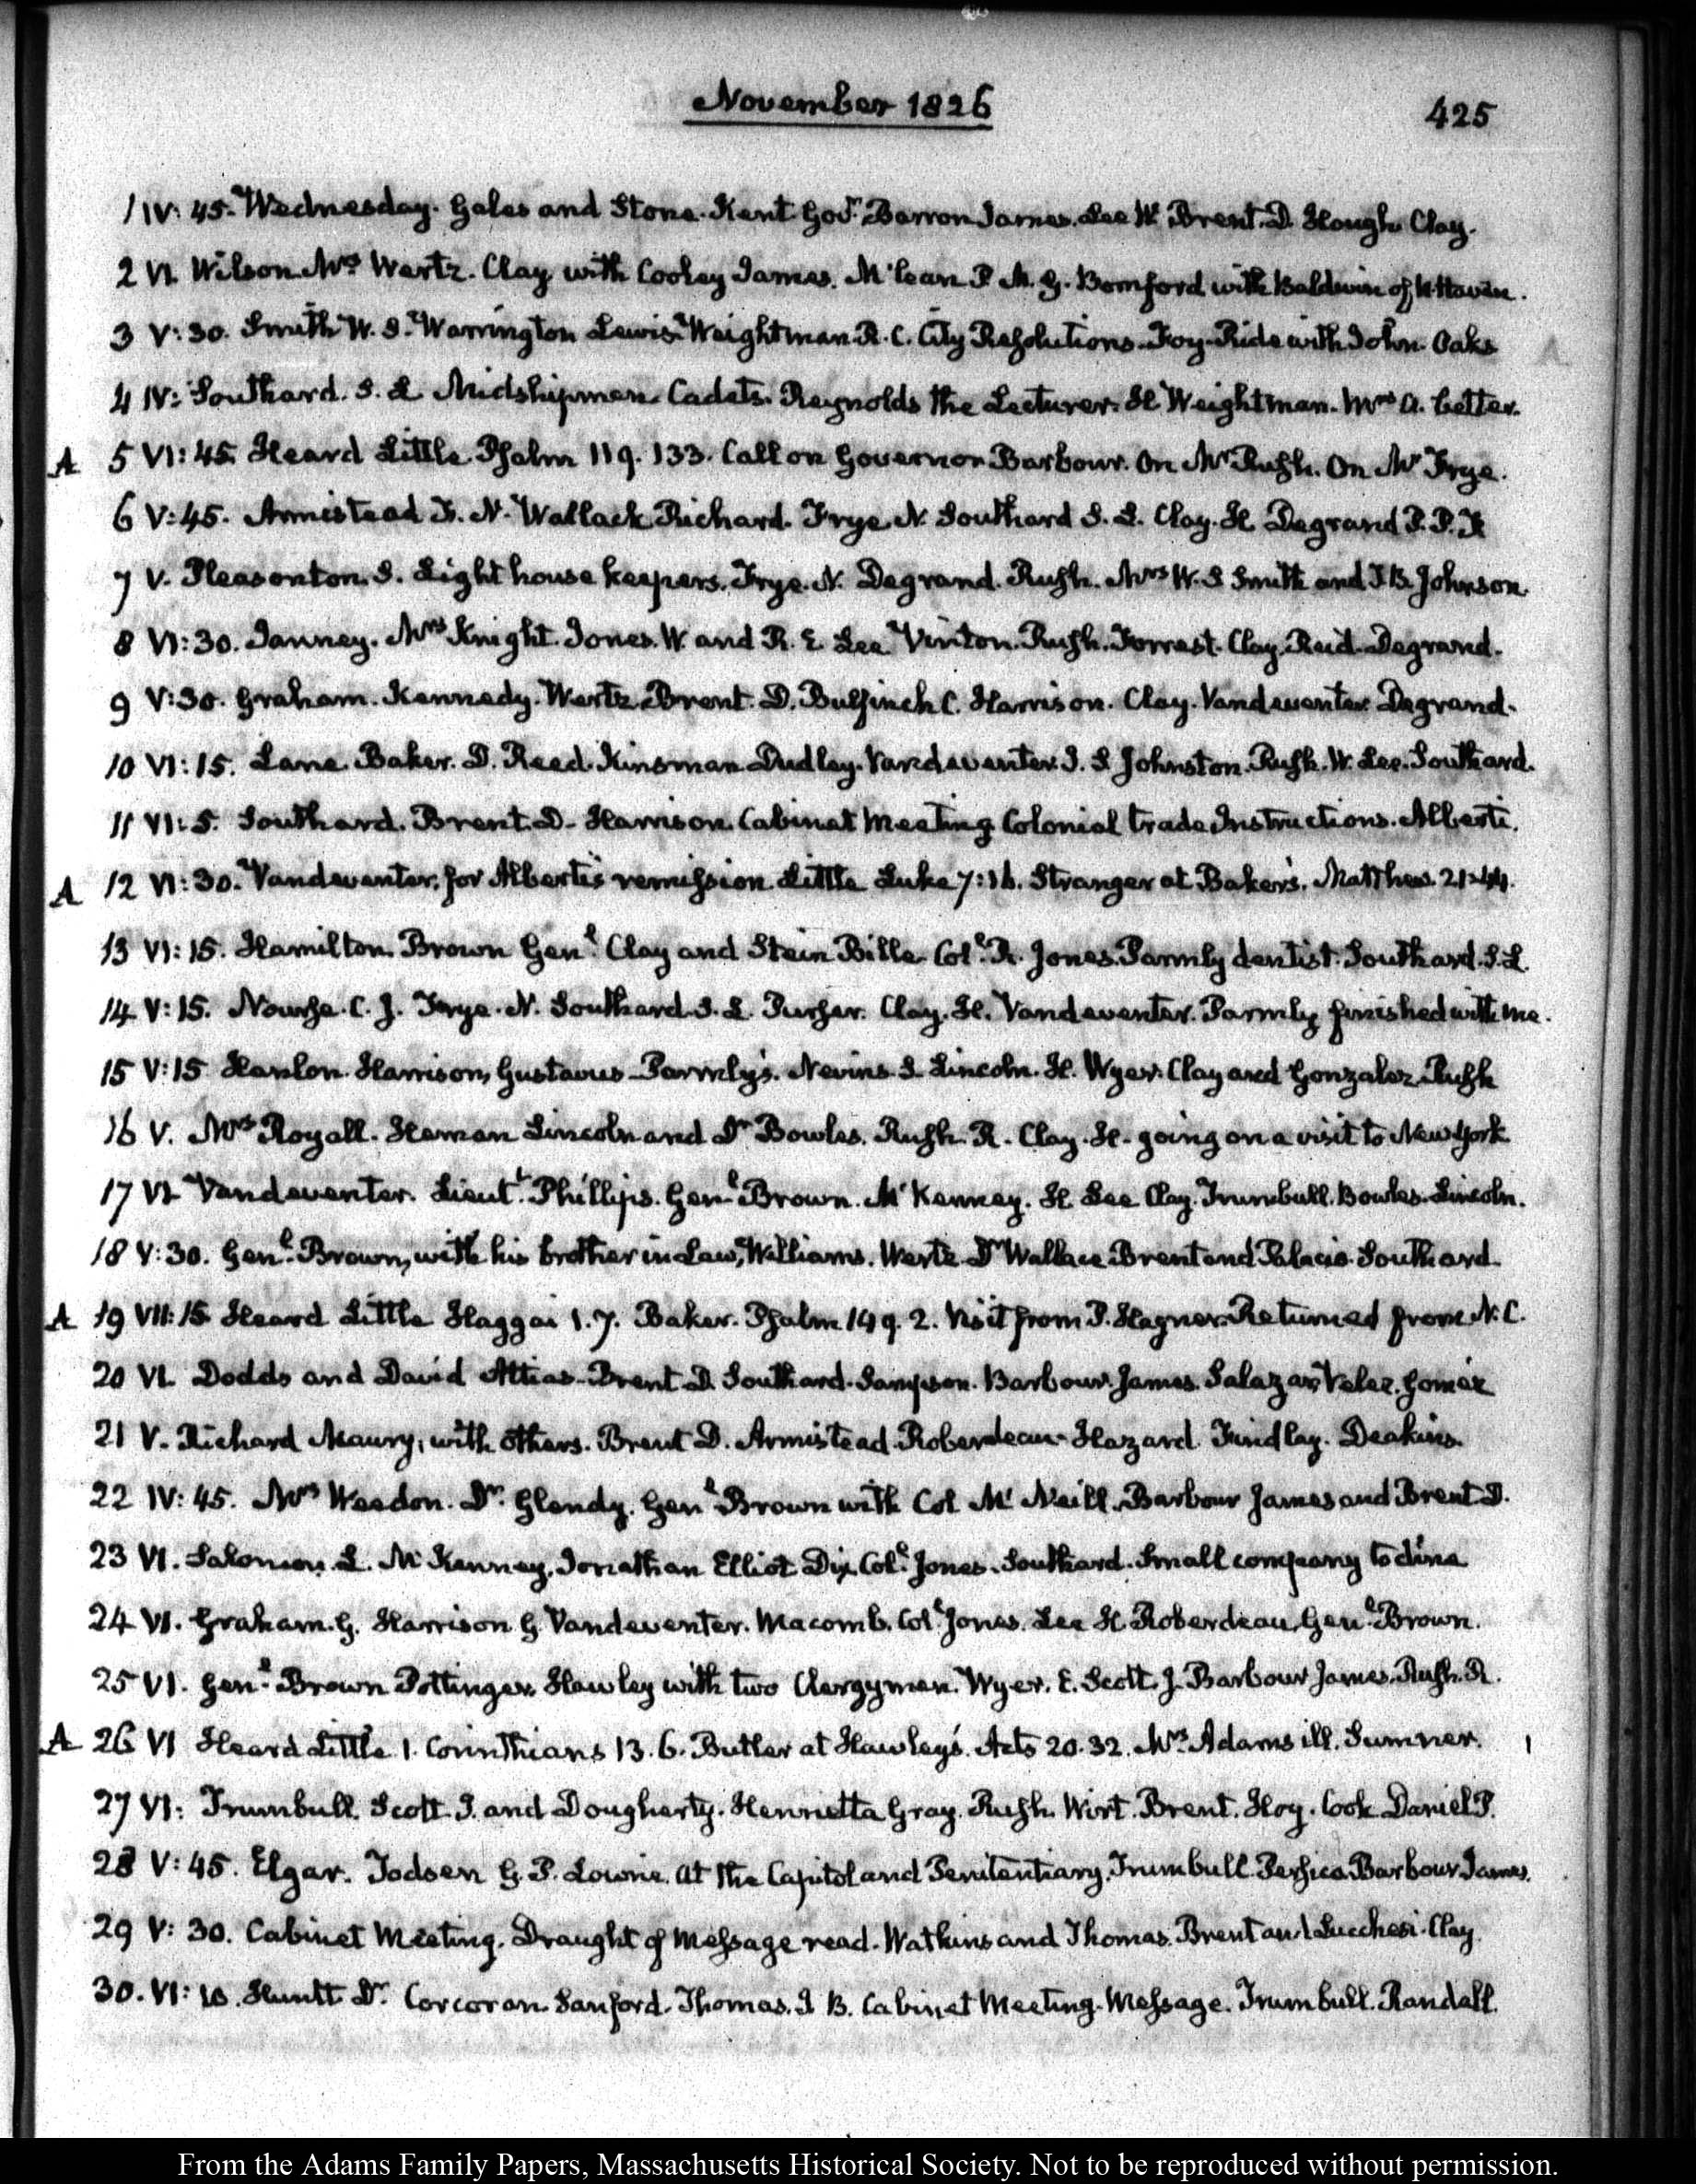 November 1826
425
1 IV: 45. Wednesday. Gales and Stone. Kent Govr. Barron James. Lee W. Brent. D. Hough. Clay.
2 VI. Wilson Mrs Wertz. Clay with Cooley James. McLean P. M. G. Bomford with Baldwin of N. Haven.
3 V: 30. Smith W. S. Warrington Lewis. Weightman. R. C. City Resolutions. Foy. Ride with John. Oaks
4 IV: Southard. S. L. Midshipmen. Cadets. Reynolds the Lecturer. H Weightman. Mrs A. better.
A 5 VI: 45. Heard Little. Psalm 119. 133. Call on Governor Barbour. On Mr Rush. On Mr Frye.
6 V: 45. Armistead F. N. Wallack Richard. Frye N. Southard S. L. Clay. H. Degrand P. P. F
7 V. Pleasonton. S. Light house keepers. Frye. N. Degrand. Rush. Mrs W. S Smith and J. B. Johnson.
8 VI: 30. Janney. Mrs Knight. Jones. W. and R. E. Lee. Vinton. Rush. Forrest. Clay. Reid. Degrand.
9 V: 30. Graham. Kennedy. Wertz. Brent. D. Bulfinch C. Harrison. Clay. Vandeventer. Degrand.
10 VI: 15. Lane. Baker. D. Reed. Kinsman Dudley. Vandeventer. J. S Johnston. Rush. W. Lee. Southard.
11 VI: 5. Southard. Brent. D. Harrison. Cabinet Meeting Colonial trade Instructions. Alberti.
A 12 VI: 30. Vandeventer, for Alberti's remission Little Luke 7: 16. Stranger at Baker's. Matthew. 21. 44.
13 VI: 15. Hamilton. Brown Genl. Clay and Stein Bille. Coll. R. Jones. Parmly dentist. Southard. S. L.
14 V: 15. Nourse. C. J. Frye. N. Southard. S. L. Purser. Clay. H. Vandeventer. Parmly finished with me.
15 V: 15 Hanlon. Harrison, Gustavus Parmly's. Nevins. S. Lincoln. H. Wyer. Clay and Gonzalez. Rush
16 V. Mrs Royall. Heman Lincoln and Dr Bowles. Rush. R. Clay. H. going on a visit to New York
17 VI. Vandeventer. Lieut. Phillips. Genl. Brown. McKenney. H. Lee Clay. Trumbull. Bowles. Lincoln.
18 V: 30. Genl. Brown, with his brother in Law, Williams. Wertz. Dr Wallace. Brent and Palacio. Southard.
A 19 VII: 15. Heard Little Haggai 1. 7. Baker. Psalm 149. 2. Visit from P. Hagner. Returned from N. C.
20 VI. Dodds and David Attias. Brent D. Southard. Sampson. Barbour. James. Salazar, Velez. Gomez
21 V. Richard Maury, with others. Brent D. Armistead. Roberdeau. Hazard. Findlay. Deakins.
22 IV: 45. Mrs Weedon. Dr. Glendy. Genl. Brown with Col McNeill. Barbour James and Brent D.
23 VI. Salomon. L. McKenney. Jonathan Elliot Dix. Coll. Jones. Southard. Small company to dine
24 VI. Graham. G. Harrison G. Vandeventer. Macomb. Coll. Jones. Lee H. Roberdeau, Genl. Brown.
25 VI. Genl. Brown Pottinger. Hawley with two Clergymen. Wyer. E. Scott. J. Barbour James. Rush. R.
A 26 VI Heard Little 1. Corinthians 13. 6. Butler at Hawley's. Acts 20. 32. Mrs. Adams ill. Sumner. 1
27 VI: Trumbull. Scott. J. and Dougherty. Henrietta Gray. Rush. Wirt. Brent. Hoy. Cook Daniel P.
28 V: 45. Elgar. Todsen G. P. Lowrie. At the Capitol and Penitentiary. Trumbull. Persico. Barbour James.
29 V: 30. Cabinet Meeting. Draught of Message read. Watkins and Thomas. Brent and Lucchesi. Clay.
30. VI: 10. Huntt Dr. Corcoran. Sanford. Thomas. J. B. Cabinet Meeting. Message. Trumbull. Randall.
From the Adams Family Papers, Massachusetts Historical Society. Not to be reproduced without permission.